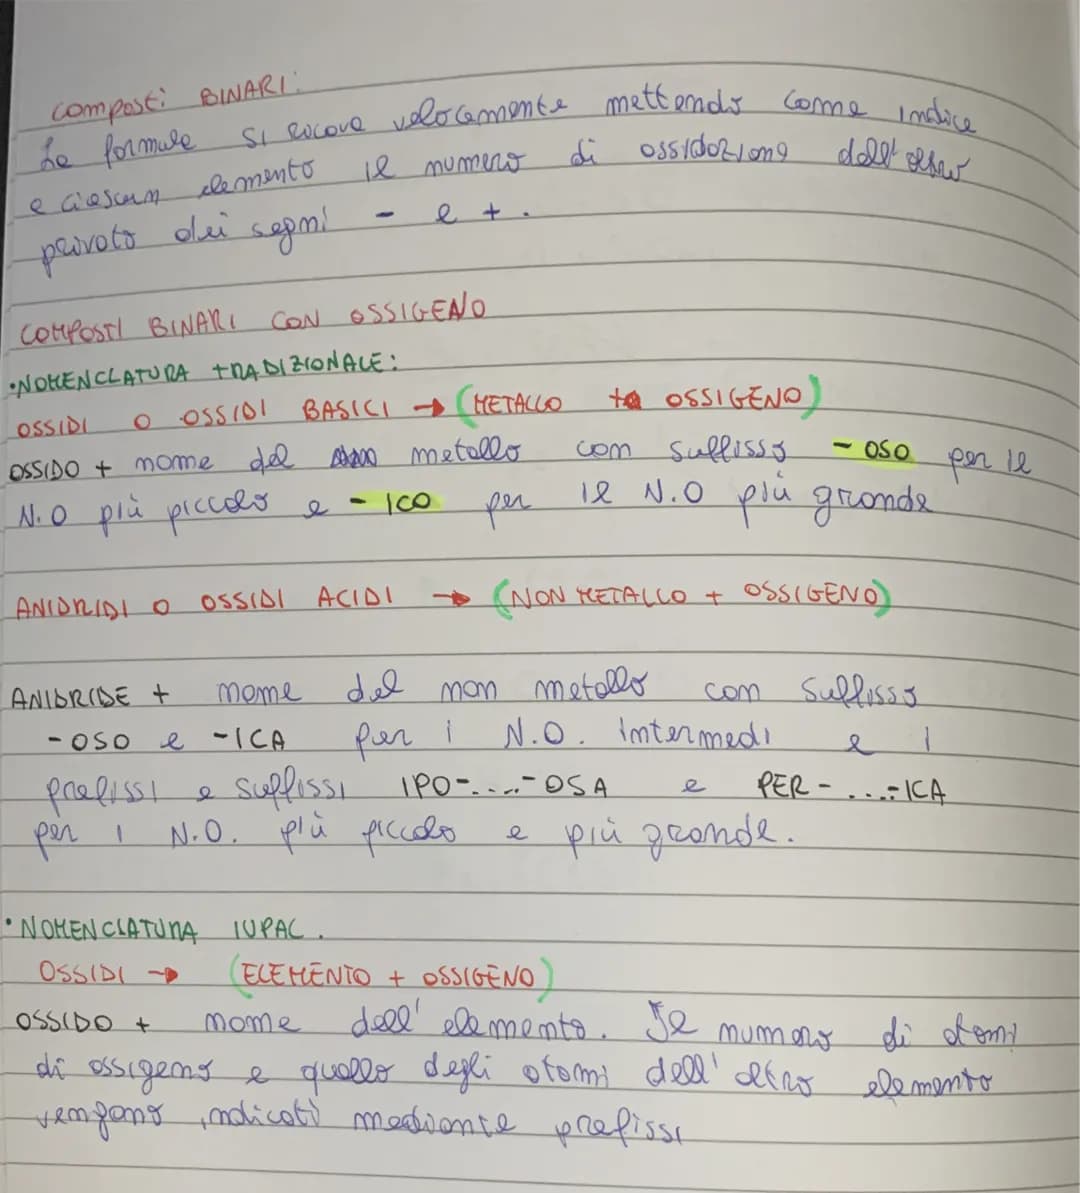 composti BINARI:
La formula si ricava velocemente mettendo come indice
a ciascun elemento il numero di ossidazione dell'altro
privato dei segni - e +.
COMPOSTI BINARI CON OSSIGENO
•NOMENCLATURA TRADIZIONALE:
OSSIDI O OSSIDI BASICI → (METALLO + OSSIGENO)
OSSIDO + nome del metallo con suffisso -OSO per il
N.O più piccolo e -ICO per il N.O più grande
ANIDRIDI O OSSIDI ACIDI → (NON METALLO + OSSIGENO)
ANIDRIDE + nome del non metallo con suffisso
-OSO e -ICA per i N.O. intermedi e i
prefissi e suffissi IPO-...-OSA e PER-...-ICA
per i N.O. più piccolo e più grande.
•NOMENCLATURA IUPAC.
OSSIDI → (ELEMENTO + OSSIGENO)
OSSIDO + nome dell'elemento. Il numero di atomi
di ossigeno e quello degli atomi dell'altro elemento
vengono indicati mediante prefissi